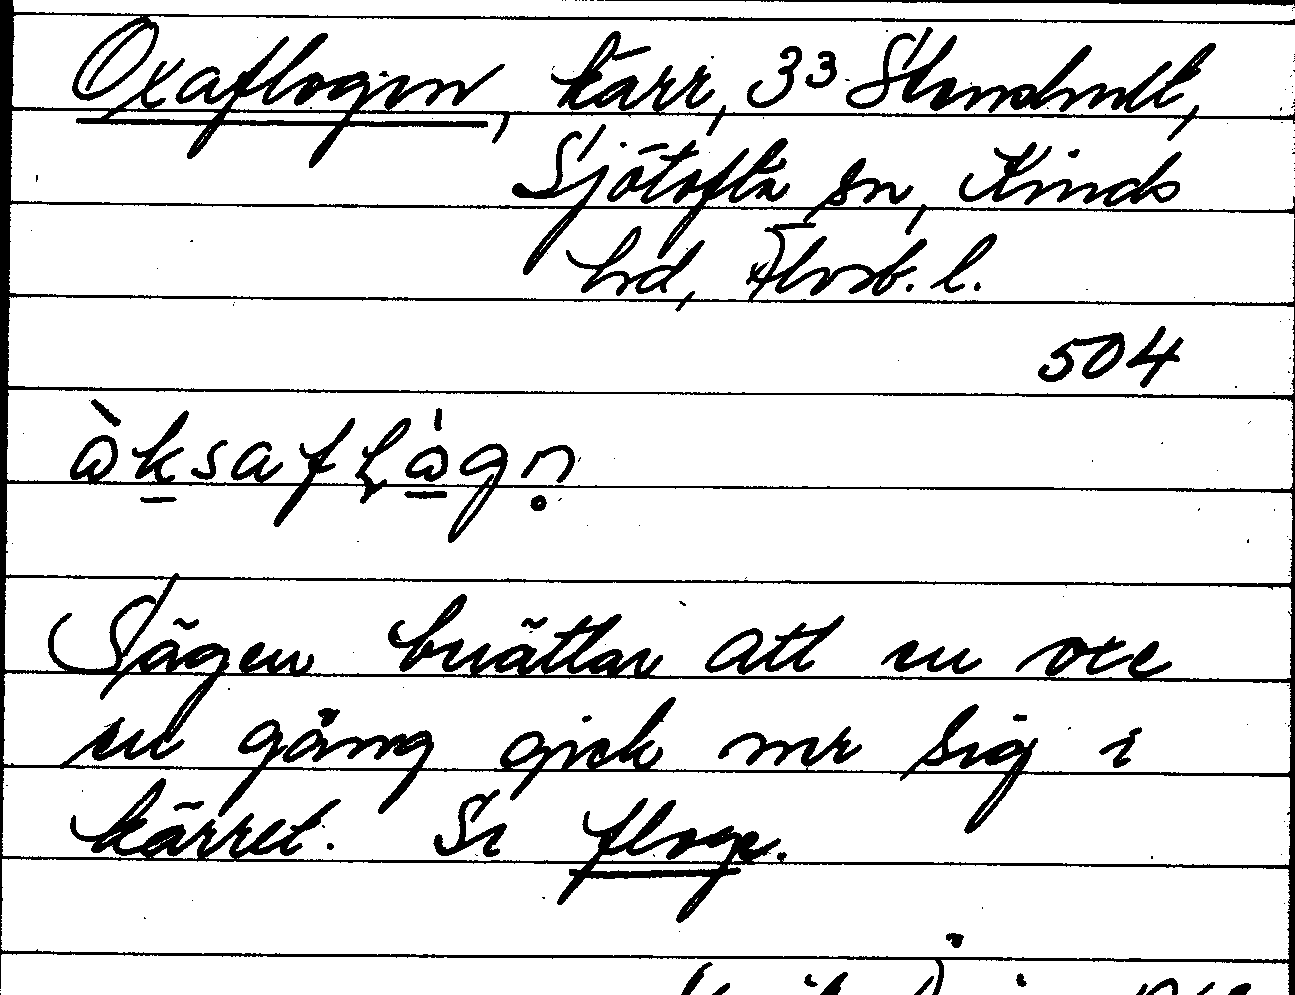 Oxaflogen, kärr, 3³ Stendhult,
Sjötofta sn, Kinds
hd, Älvsb. l.
504
Sägen berättar att en oxe
en gång gick ner sig i
kärret. Se floge.